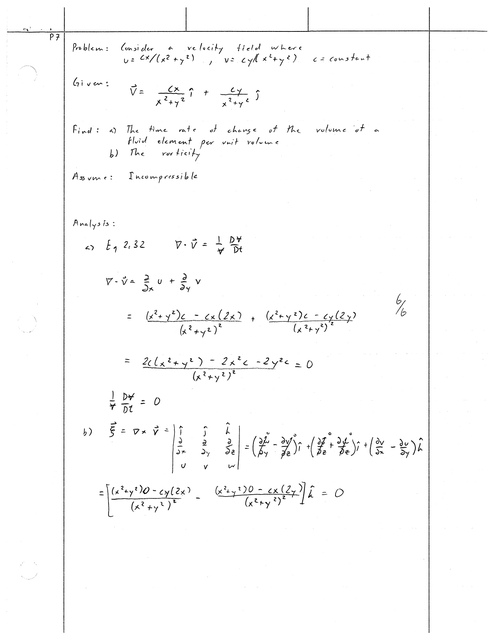 P7
Problem: Consider a velocity field where
u = cx/(x²+y²) , v = cy/(x²+y²) c = constant
Given:
V⃗ = cx/(x²+y²) î + cy/(x²+y²) ĵ
Find: a) The time rate of change of the volume of a
fluid element per unit volume
b) The vorticity
Assume: Incompressible
Analysis:
a) Eq 2.32 ∇·V⃗ = 1/V DV/Dt
∇·V⃗ = ∂/∂x u + ∂/∂y v
= ((x²+y²)c - cx(2x))/(x²+y²)² + ((x²+y²)c - cy(2y))/(x²+y²)²
6/6
= (2c(x²+y²) - 2x²c - 2y²c)/(x²+y²)² = 0
1/V DV/Dt = 0
b) ξ⃗ = ∇× V⃗ = | î ĵ k̂ ; ∂/∂x ∂/∂y ∂/∂z ; u v w | = (∂w/∂y - ∂v/∂z) î + (∂u/∂z + ∂w/∂x) ĵ + (∂v/∂x - ∂u/∂y) k̂
= [((x²+y²)0 - cy(2x))/(x²+y²)² - ((x²+y²)0 - cx(2y))/(x²+y²)²] k̂ = 0